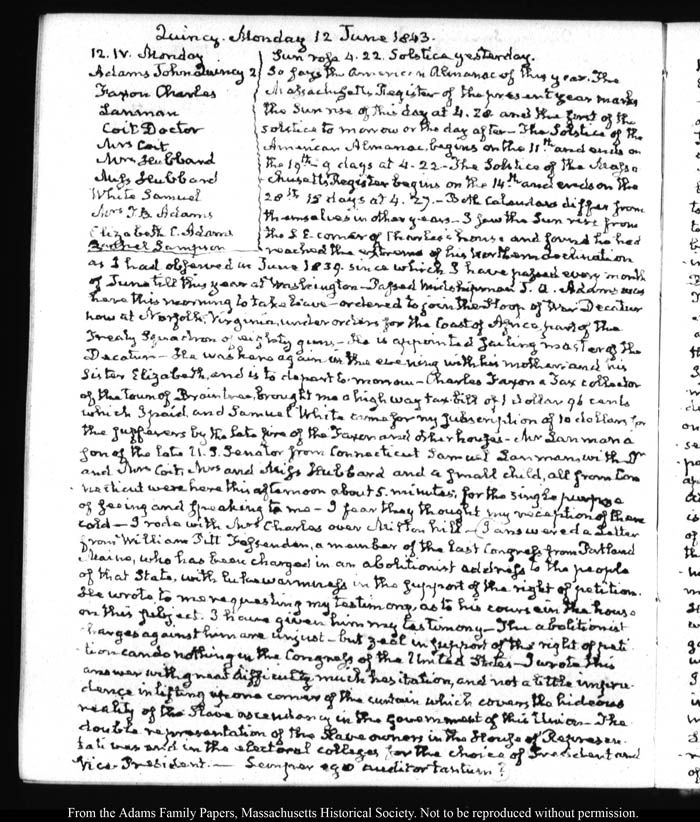 Quincy. Monday 12 June 1843.
12. IV. Monday
Adams John Quincy 2
Faxon Charles
Lanman
Coit Doctor
Mrs Coit
Mrs Hubbard
Miss Hubbard
White Samuel
Mrs T. B. Adams
Elizabeth C. Adams
Sampson
Sun rose 4. 22. Solstice yesterday.
So says the American Almanac of this year. The
Massachusetts Register of the present year marks
the Sun rise of this day at 4. 28 and the first of the
solstice to morrow or the day after— The Solstice of the
American Almanac, begins on the 11th and ends on
the 19th 9 days at 4- 22— The Solstice of the Massa-
chusetts Register begins on the 14th and ends on the
28th 15 days at 4. 27.— Both Calendars differ from
themselves in other years— I saw the Sun rise from
the S. E. corner of Charles's house and found he had
reached the extreme of his Northern declination
as I had observed in June 1839. since which I have passed every month
of June till this year at Washington— Passed Midshipman J. Q. Adams was
here this morning to take leave— ordered to join the Sloop of War Decatur
now at Norfolk, Virginia under orders for the Coast of Africa, part of the
Treaty Squadron of eighty guns,— He is appointed sailing master of the
Decatur— He was here again in the evening with his mother and his
Sister Elizabeth, and is to depart to-morrow— Charles Faxon a Tax collector
of the town of Braintree, brought me a high way tax bill of 1 dollar 96 cents
which I paid, and Samuel White came for my subscription of 10 dollars for
the sufferers by the late fire of the Faxon and other houses— Mr Lanman a
son of the late U. S. Senator from Connecticut Samuel Lanman, with Dr
and Mrs Coit, Mrs and Miss Hubbard and a small child, all from Con
necticut were here this afternoon about 5. minutes, for the single purpose
of seeing and speaking to me— I fear they thought my reception of them
cold— I rode with Mrs Charles over Milton hill— I answered a Letter
from William Pitt Fessenden, a member of the last Congress from Portland
Maine, who has been charged in an abolitionist address to the people
of that State, with lukewarmness in the support of the right of petition.
He wrote to me requesting my testimony, as to his course in the house
on this subject. I have given him my testimony— The abolitionist
charges against him are unjust— but zeal in support of the right of peti
tion can do nothing in the Congress of the United States— I wrote this
answer with great difficulty, much hesitation, and not a little impru-
dence in lifting up one corner of the curtain which covers the hideous
reality of the Slave ascendancy in the government of this Union— The
double representation of the Slave owners in the House of Represen-
tatives and in the electoral colleges for the choice of President and
Vice-President.— Semper ego auditor tantum?
From the Adams Family Papers, Massachusetts Historical Society. Not to be reproduced without permission.